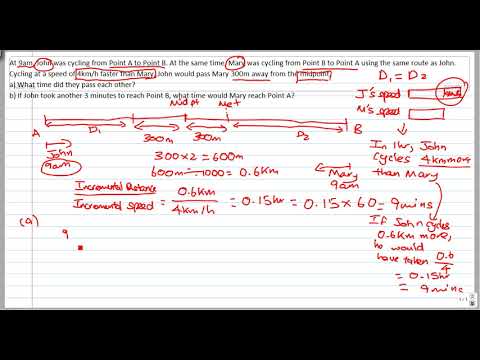 At 9am, John was cycling from Point A to Point B. At the same time, Mary was cycling from Point B to Point A using the same route as John.
Cycling at a speed of 4km/h faster than Mary, John would pass Mary 300m away from the midpoint.
a) What time did they pass each other?
b) If John took another 3 minutes to reach Point B, what time would Mary reach Point A?
D₁ = D₂
J's speed
4km/h
M's speed
Midpt
Met
A
D₁
300m
300m
D₂
B
John
9am
300×2 = 600m
600m ÷ 1000 = 0.6Km
Mary
9am
In 1hr, John
cycles 4km more
than Mary
Incremental Distance
Incremental speed
= 0.6Km
4Km/h
= 0.15hr
= 0.15 × 60 = 9mins
If John cycles
0.6Km more,
he would
have taken 0.6
4
= 0.15hr
= 9mins
(a)
9